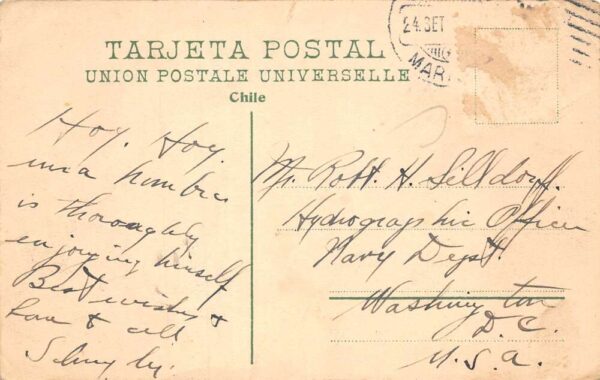 TARJETA POSTAL
UNION POSTALE UNIVERSELLE
Chile
24 SET
MAR
Hoy, Hoy.
una hombre
is thoroughly
enjoying himself
Best wishes &
love to all
Mr. Robt. H. Selldorff.
Hydrographic Office
Navy Dept.
Washington
D.C.
U.S.A.